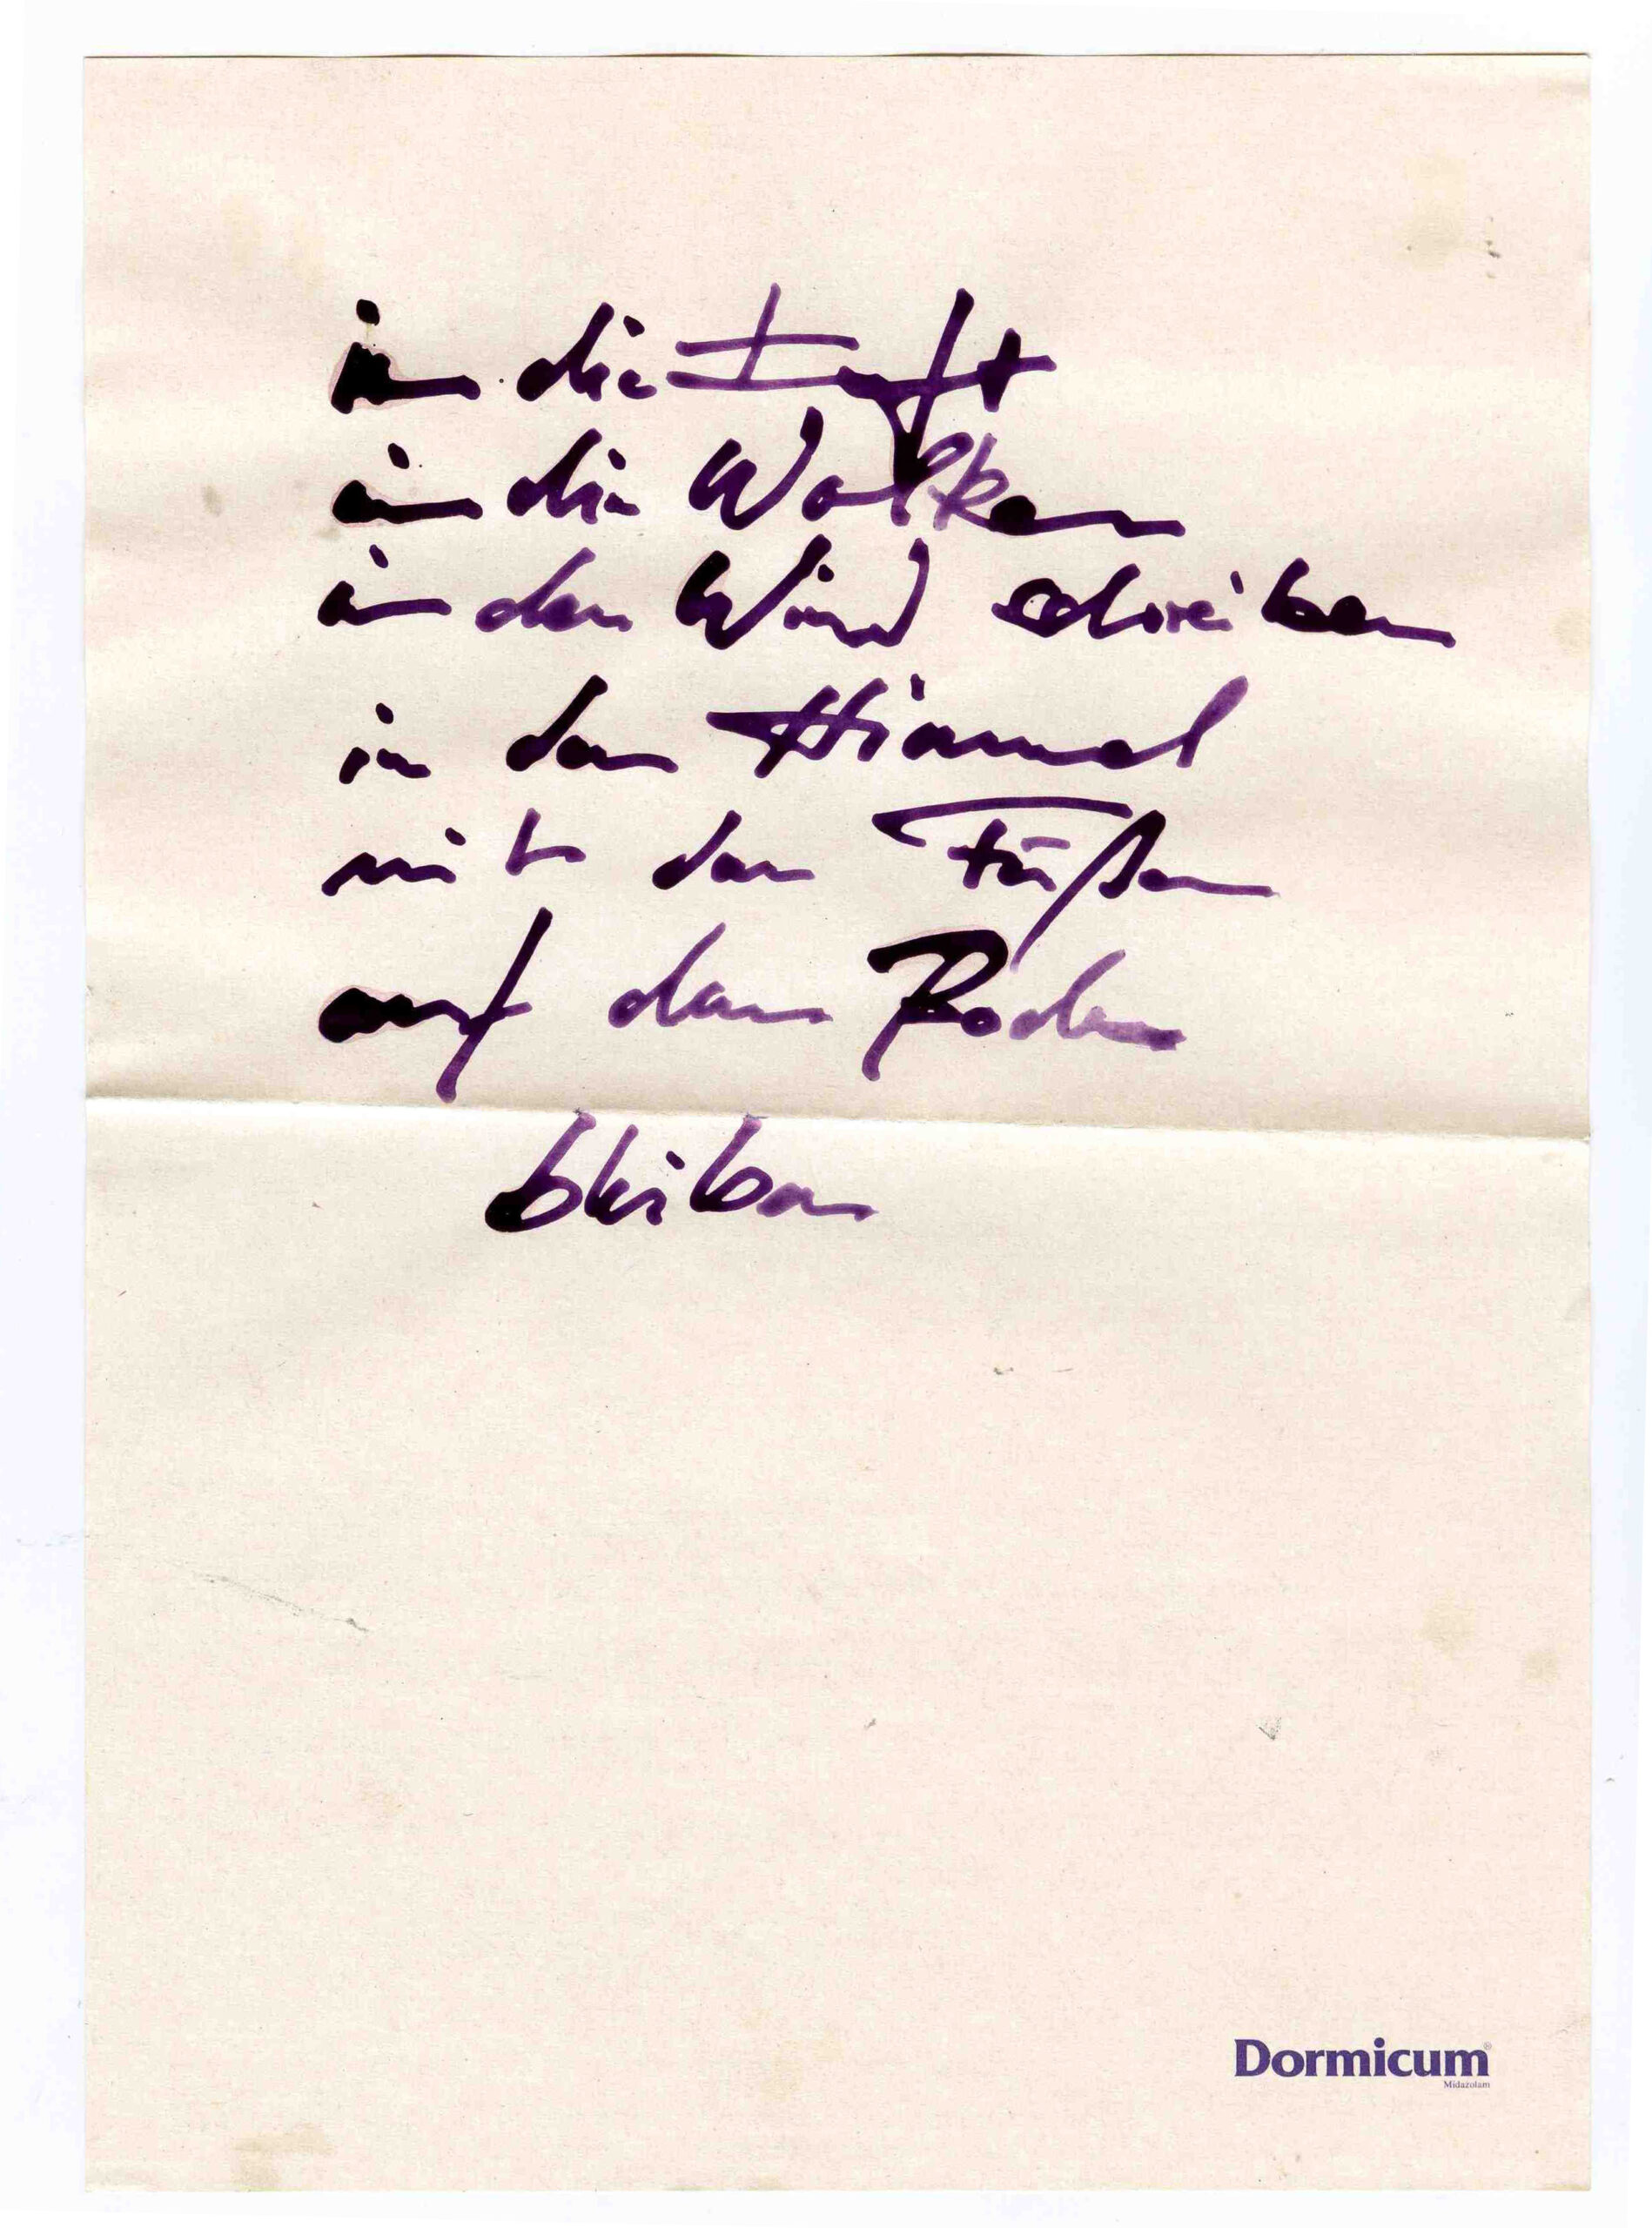 in die Luft
in die Wolken
in den Wind schreiben
in den Himmel
mit den Füßen
auf dem Boden
bleiben
Dormicum®
Midazolam